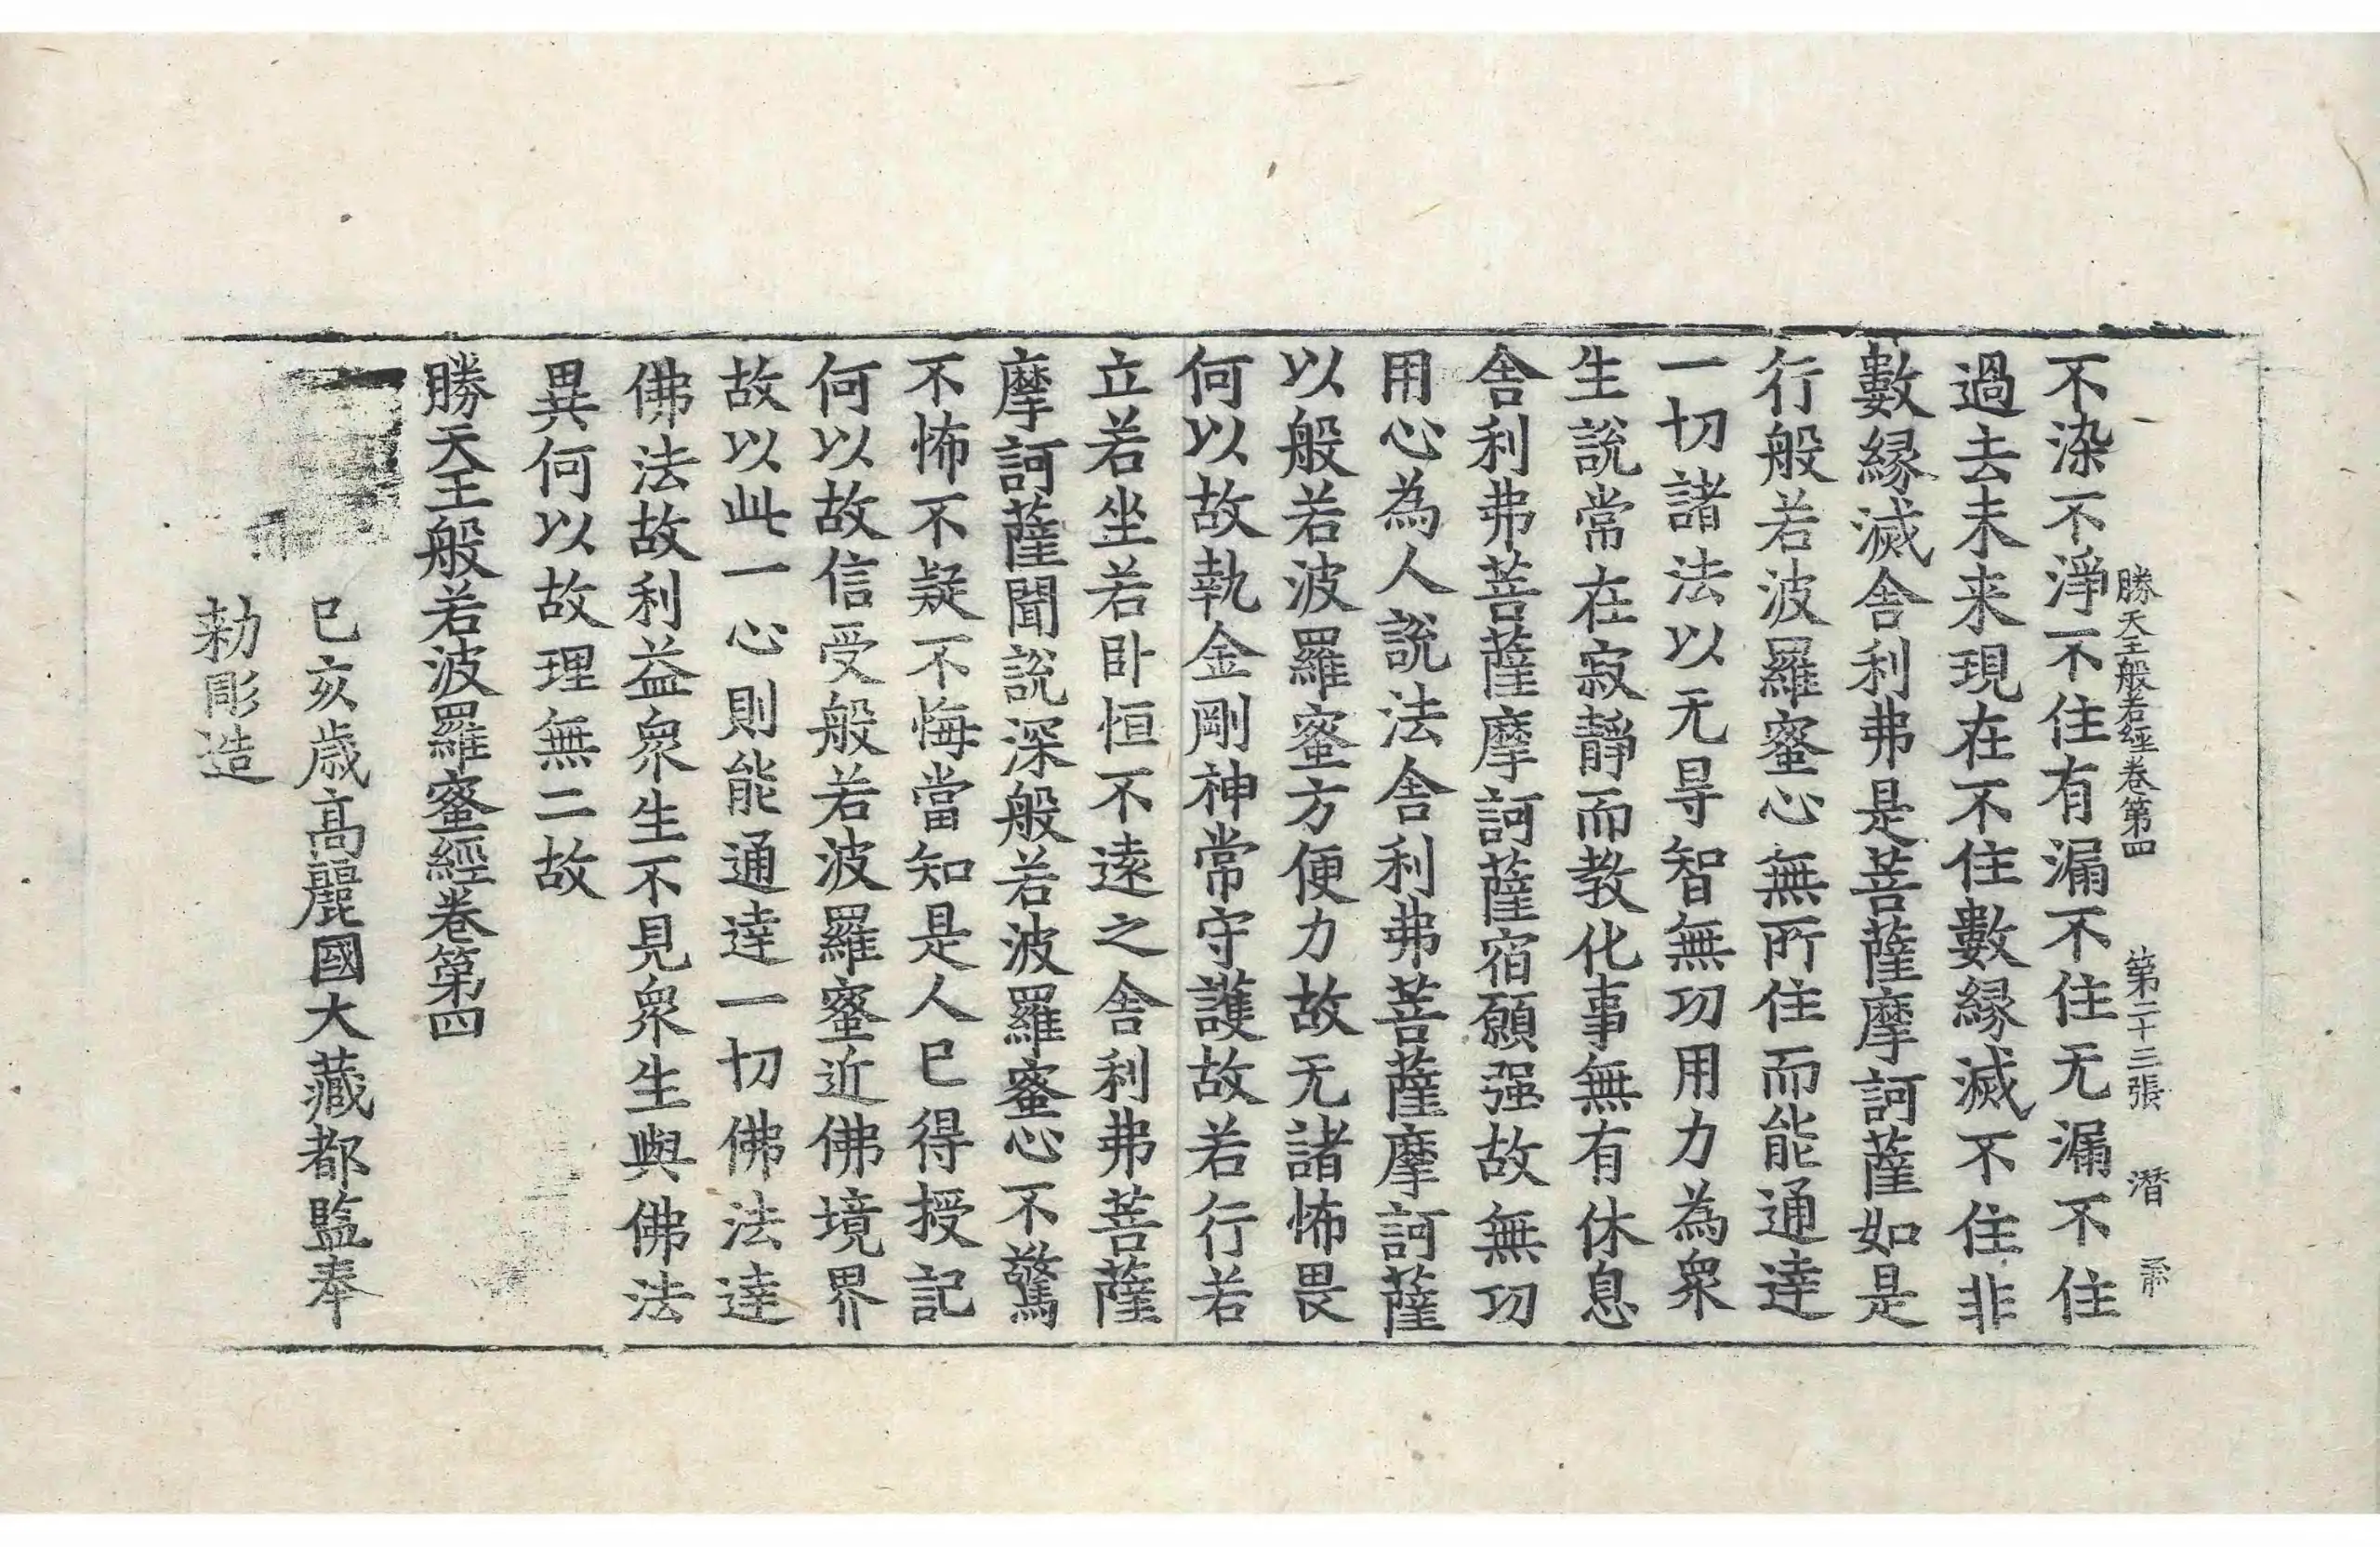 勝天王般若經卷第四 第二十三張 潛
不染不淨不住有漏不住无漏不住
過去未来現在不住數縁滅不住非
數縁滅舍利弗是菩薩摩訶薩如是
行般若波羅蜜心無所住而能通達
一切諸法以无㝵智無功用力為衆
生說常在寂靜而教化事無有休息
舍利弗菩薩摩訶薩宿願强故無功
用心為人說法舍利弗菩薩摩訶薩
以般若波羅蜜方便力故无諸怖畏
何以故執金剛神常守護故若行若
立若坐若卧恒不逺之舍利弗菩薩
摩訶薩聞說深般若波羅蜜心不驚
不怖不疑不悔當知是人已得授記
何以故信受般若波羅蜜近佛境界
故以此一心則能通達一切佛法達
佛法故利益衆生不見衆生與佛法
異何以故理無二故
勝天王般若波羅蜜經卷第四
己亥歲高麗國大藏都監奉
勑彫造